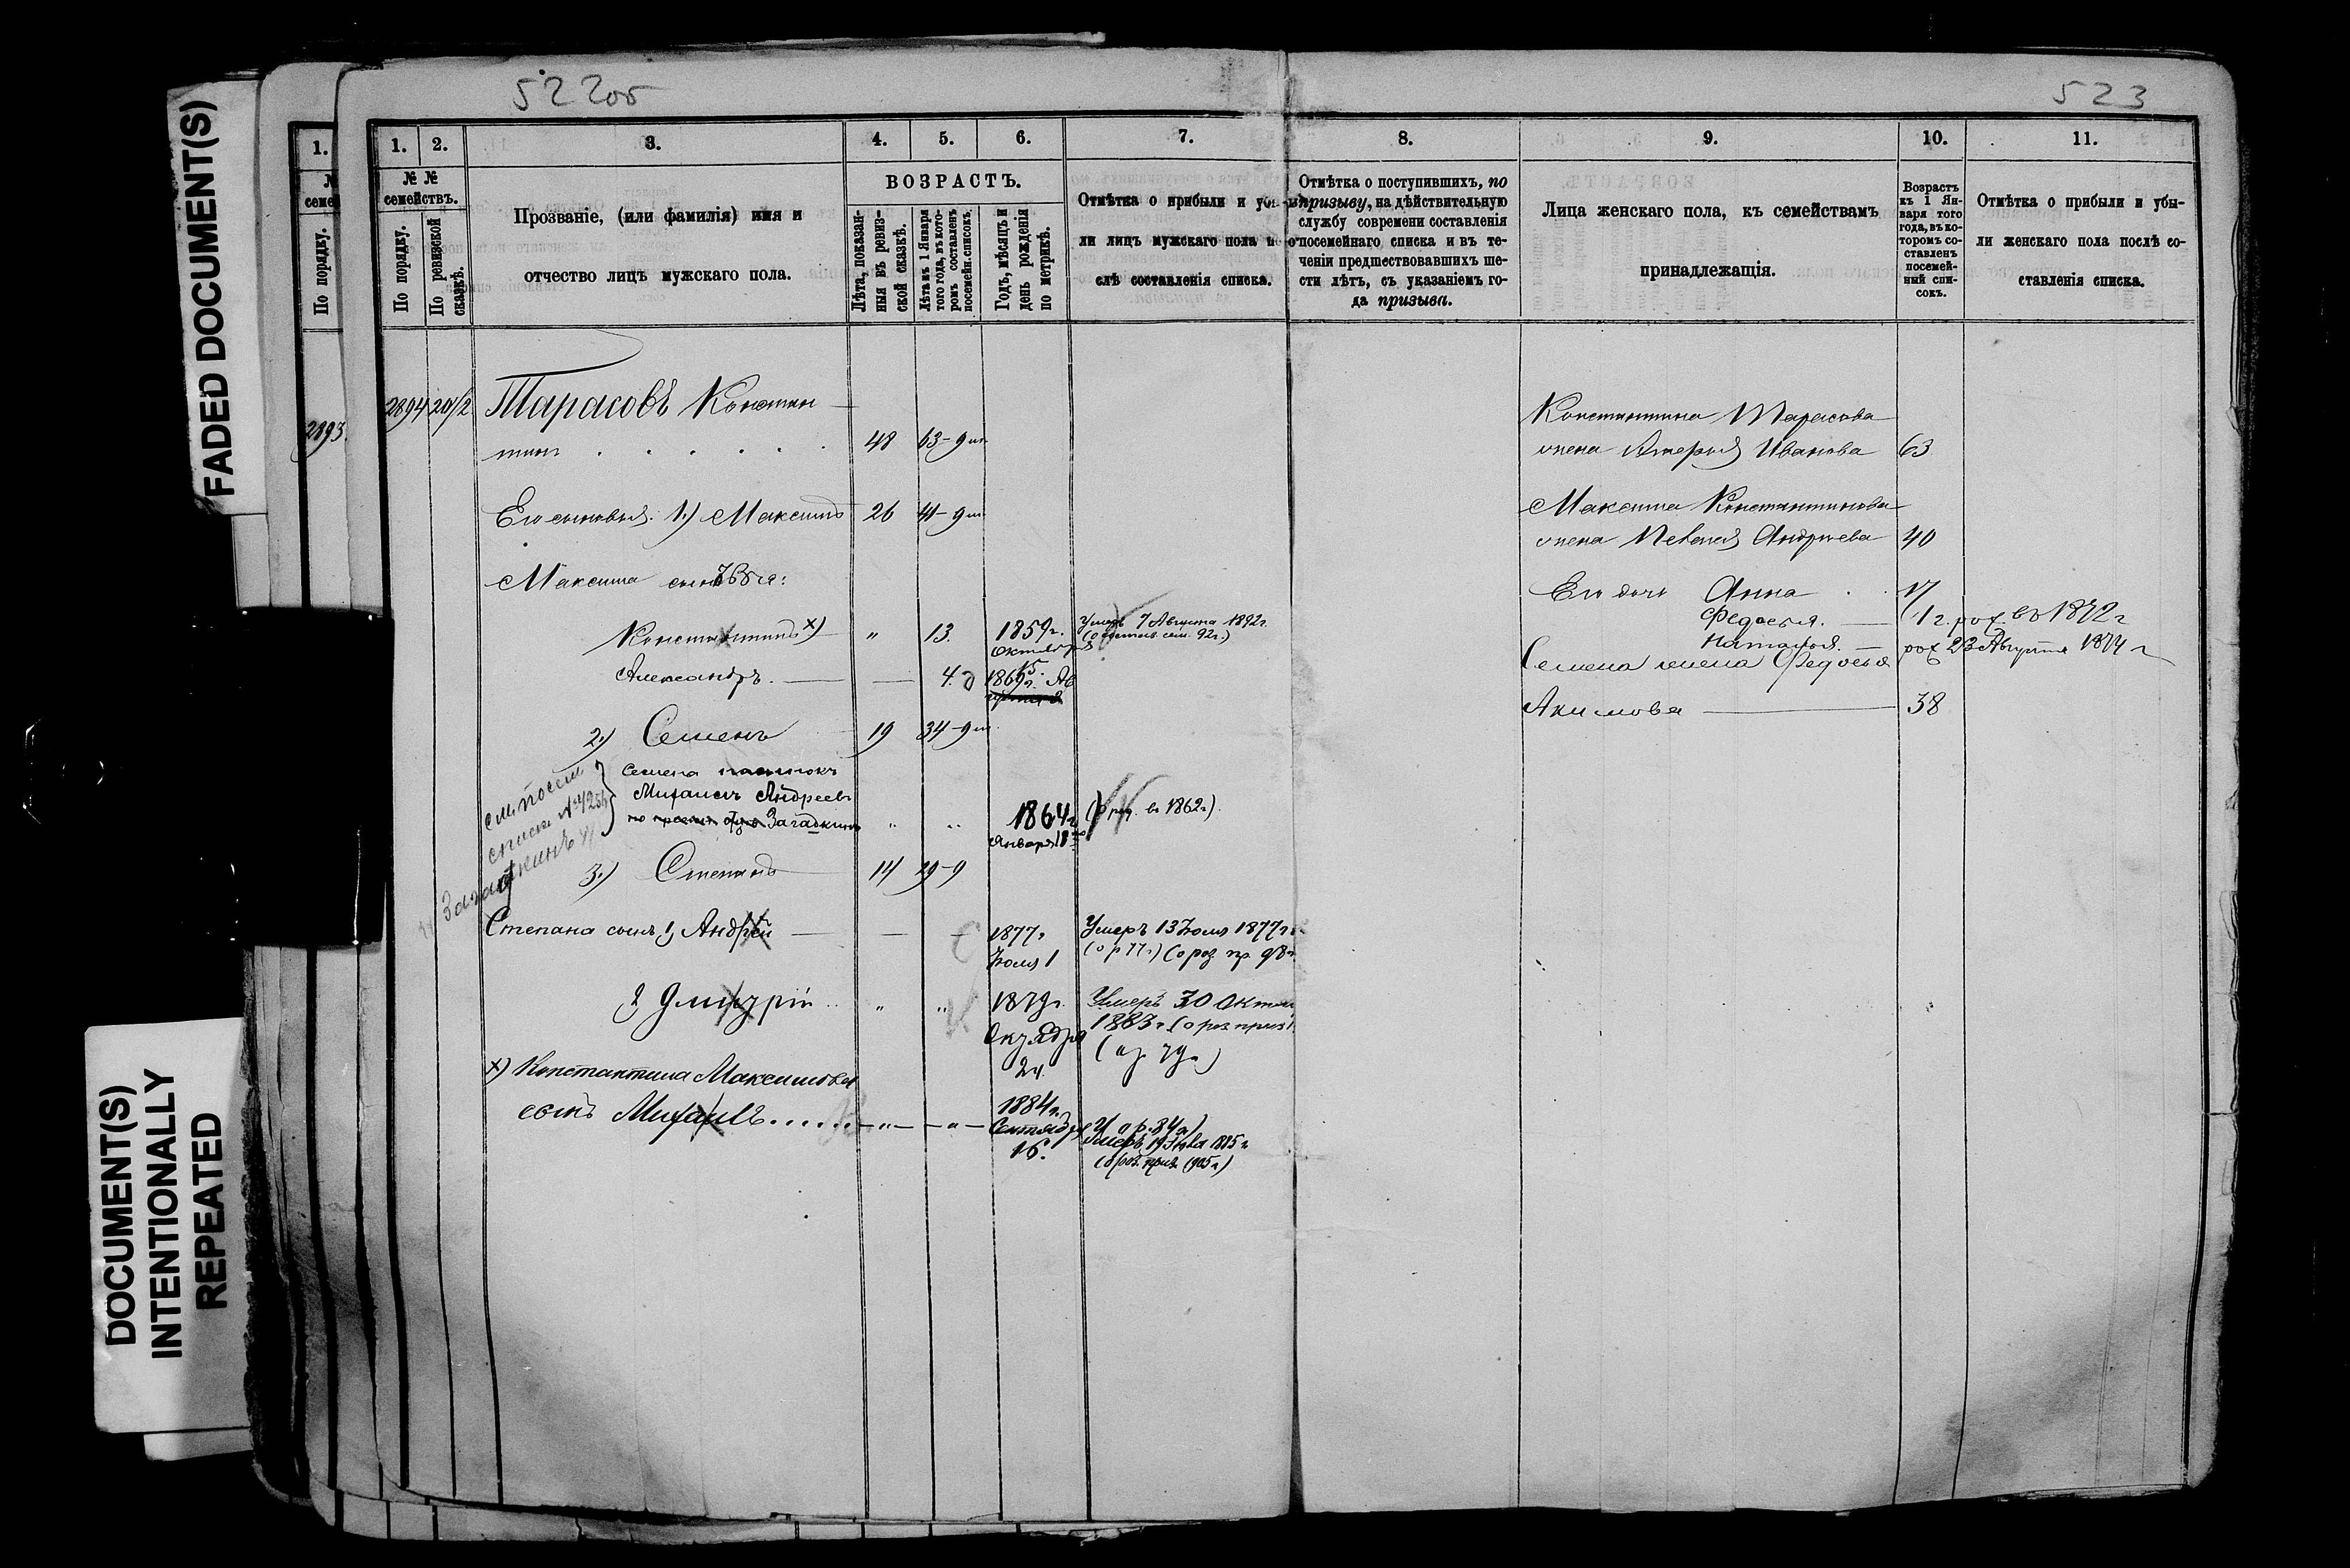 FADED DOCUMENT(S)
DOCUMENT(S)
INTENTIONALLY
REPEATED
1.
семей
По порядку.
2893.
522об
523
1.
2.
3.
4.
5.
6.
7.
8.
9.
10.
11.
№ №
семействъ.
По порядку.
По ревизской
сказкѣ.
Прозваніе, (или фамилія) имя и
отчество лицъ мужскаго пола.
ВОЗРАСТЪ.
Лѣта, показан-
ныя въ ревиз-
ской сказкѣ.
Лѣта къ 1 Января
того года, въ кото-
ромъ составленъ
посемейн. списокъ.
Годъ, мѣсяцъ и
день рожденія
по метрикѣ.
Отмѣтка о прибыли и убы-
ли лицъ мужскаго пола по-
слѣ составленія списка.
Отмѣтка о поступившихъ, по
призыву, на дѣйствительную
службу современи составленія
посемейнаго списка и въ те-
ченіи предшествовавшихъ ше-
сти лѣтъ, съ указаніемъ го-
да призыва.
Лица женскаго пола, къ семействамъ
принадлежащія.
Возрастъ
къ 1 Ян-
варя того
года, въ ко-
торомъ со-
ставленъ
посемей-
ный спи-
сокъ.
Отмѣтка о прибыли и убы-
ли женскаго пола послѣ со-
ставленія списка.
2894 20/2 Тарасовъ Констан
тинъ 48 63-9 м
Его сыновья: 1.) Максимъ 26 41-9 м
Максима сыновья:
Константинъ х) " 13. 1859г. Умеръ 7 Августа 1892г.
Октября
Александръ. — — 4. 1869г. Ав
15
2.) Семенъ 19 34-9 м
Семена пасынокъ
Михаилъ Андреевъ
Загадкинъ " " 1864г. в 1862г.)
Января 18
см. посем
списк. №
Загадкинъ
3.) Степанъ 14 29-9
Степана сынъ 1) Андрей — — — 1877г. Умеръ 13 Іюля 1877г.
Іюля 1 (о р 77г.) (о роз. пр. 98г.
2 Дмитрій " " 1879г. Умеръ 30 Октяб
Октября 1883г. (о роз. приз
24.
х) Константина Максимова
сынъ Михаилъ..... — " — — " — 1884г.
Сентября (о р. 84г)
16. Умеръ 19 1885г.
(о роз. приз. 1905г)
Константина Тарасова
жена Иванова 63
Максима Константинова
жена Андреева 40
Его дочь Анна 17
Федосья. — 1 г. рож. въ 1872г
Наталья. — рож 23 Августа 1874 г
Семена жена Федосья
Акимова — 38